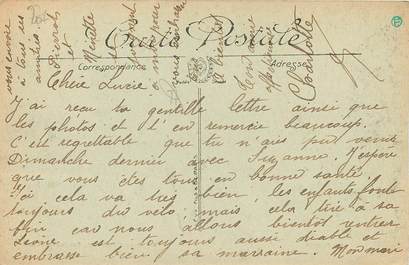 Carte Postale
Correspondance
Chère Lucie
J'ai reçu ta gentille lettre ainsi que
les photos et t'en remercie beaucoup.
C'est regrettable que tu n'ais pu venir
Dimanche dernier avec Suzanne. J'espère
que vous êtes tous en bonne santé.
Ici cela va très bien, les enfants font
toujours du vélo mais cela tire à sa
fin car nous allons bientôt rentrer
est toujours aussi diable et
embrasse bien sa marraine. Mon mari
vous envoie
à tous ses
amitiés
et
pour
vous embrasser
A bientôt
Charlotte